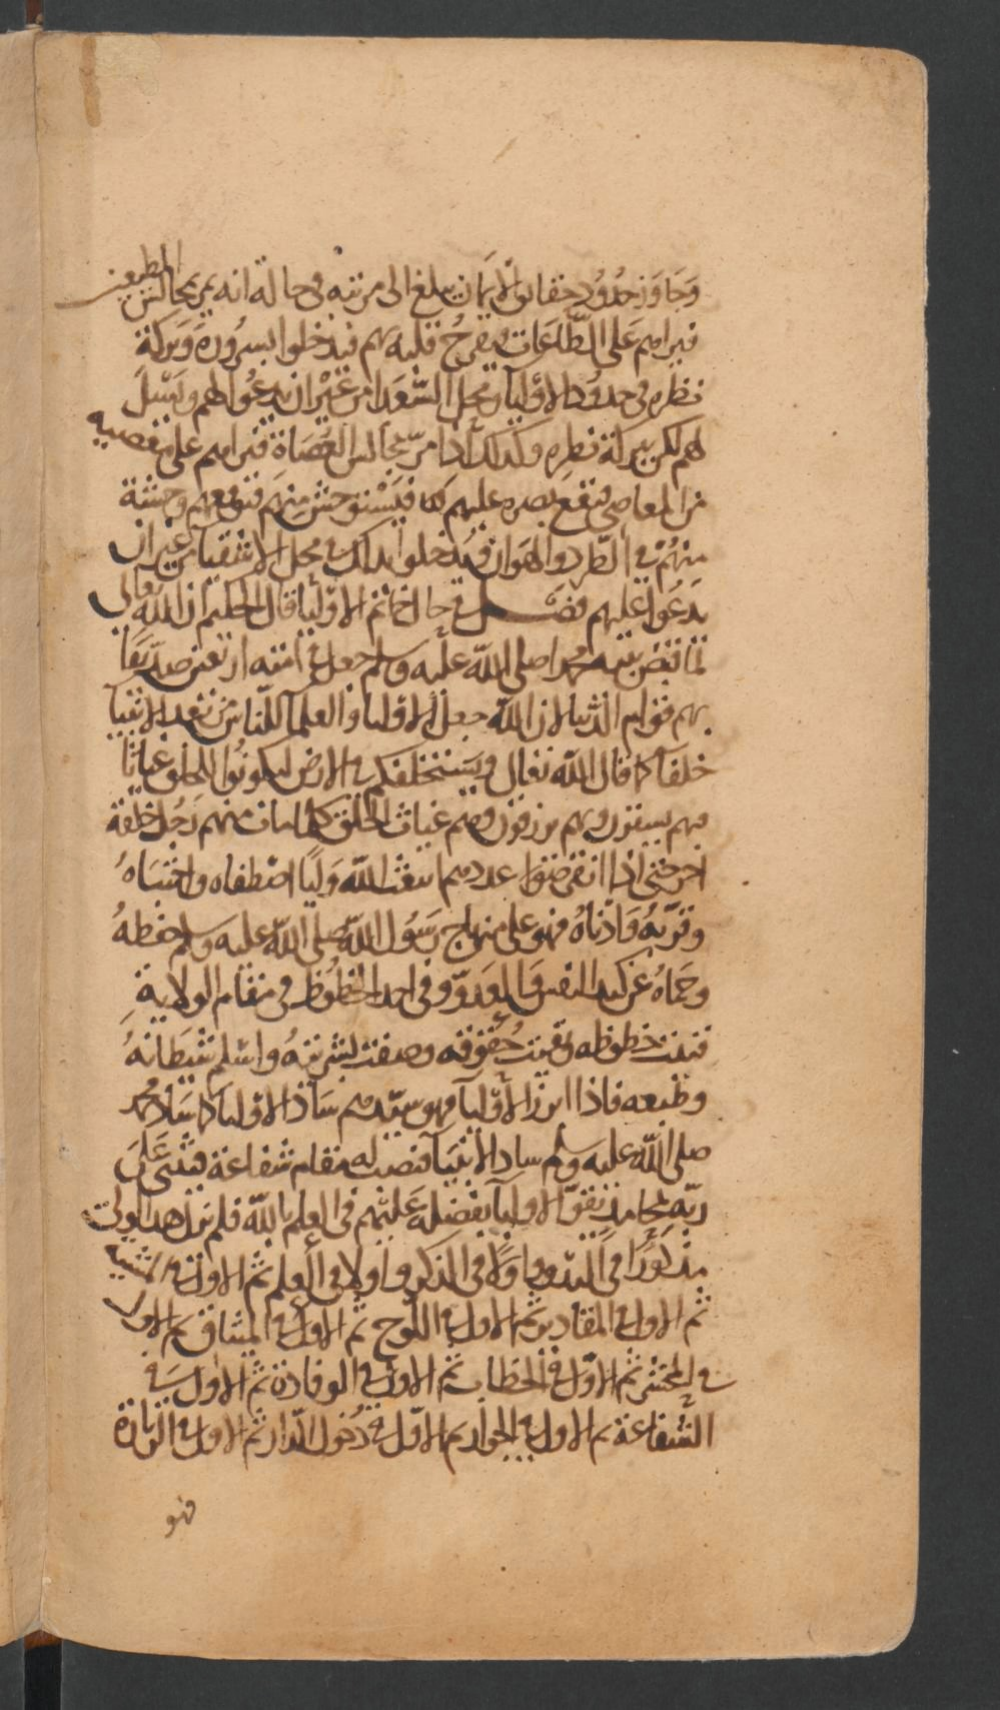 وَجَاوَزَ حُدُودَ حقايق الايمَان يبلغ الى مرتبه فى حالة انه يمر بمجالس المطيعين
فيراهم عَلى الطَّاعَات فيفرحُ قلبه بهم فيدخلوا بسرُورهِ وَبركَة
نظره فى حدود الاوليآ ومحل السُّعَدا من غَيْر ان يدعُوا لهم ويَسْل
لهم لكن ببركة نظره وكذلك اذا مرّ بمجالس العُصَاة فيراهم على معصيه
من المعاصى فيقعَ بصره عليهم فَيَسْتوحش مِنهَم فتوقعهم وحشته
مِنهُمْ فى الطرد والهَوان فيُدخلوا بذلك فى محل الاشقيآ من غير ان
يَدعُوا عليهم فصْـل فى حال خاتم الاوليا قال الحكيم ان الله تعالى
لما قبض نبيه محمدا صلى اللّه عليه وسلم جعل فى امته اربعين صدّيقًا
بهم قوام الدّنيا لان اللّه جعل الاوليا والعلمآ للنّاس من بَعد الانبيآ
خلفآ كما قال اللّه تعالى ويَستخلفكم فى الارض ليكونُوا للخلق غياثا
فبهم يسقون وبهم يرزقون وهم غياث الخلق كلما مات منهم رَجُل خلفه
اخر حتى اذا انقرضوا عددهم ابتعث اللّه وَليًا اصْطفاه واجتبَاهُ
وقرّبهُ وَادْناهُ فهو على منهاج رَسُول اللّه صلى اللّه عليه وسلم حفظهُ
وحَمَاهُ عَن كيد النفس وَالعَدوّ وفى احد الحظوظ فى مقام الولايةِ
فنيت حظوظه وبقيت حُقوقه وصفت بشريتهُ واسْلم شيطانهُ
وطبعه فاذا ابرز الاوليآ فهو سيّدهم سَاد الاوليا كما سَاد محمد
صلى اللّه عليه وسلم ساير الانبيآ فنصب له مقام شفاعة فيثنى عَلى
ربّه بمحامد تقرّ الاوليآ بفضله عَليْهم فى العلم باللّه فلم يزل هذا الولى
مذكُورًا فى البَدو اوّلا فى الذكر واولا فى العِلم ثم الاول فى المشيه
ثم الاول فى المقادير ثم الاول فى اللّوح ثم الاول فى الميثاق ثم الاول
فى المحشر ثم الاوّل فى الخطاب ثم الاول فى الوفادة ثم الاول فى
الشّفاعة ثم الاول فى الجوار ثم الاوّل فى دُخول الدّار ثم الاول فى الزيارة
فهو